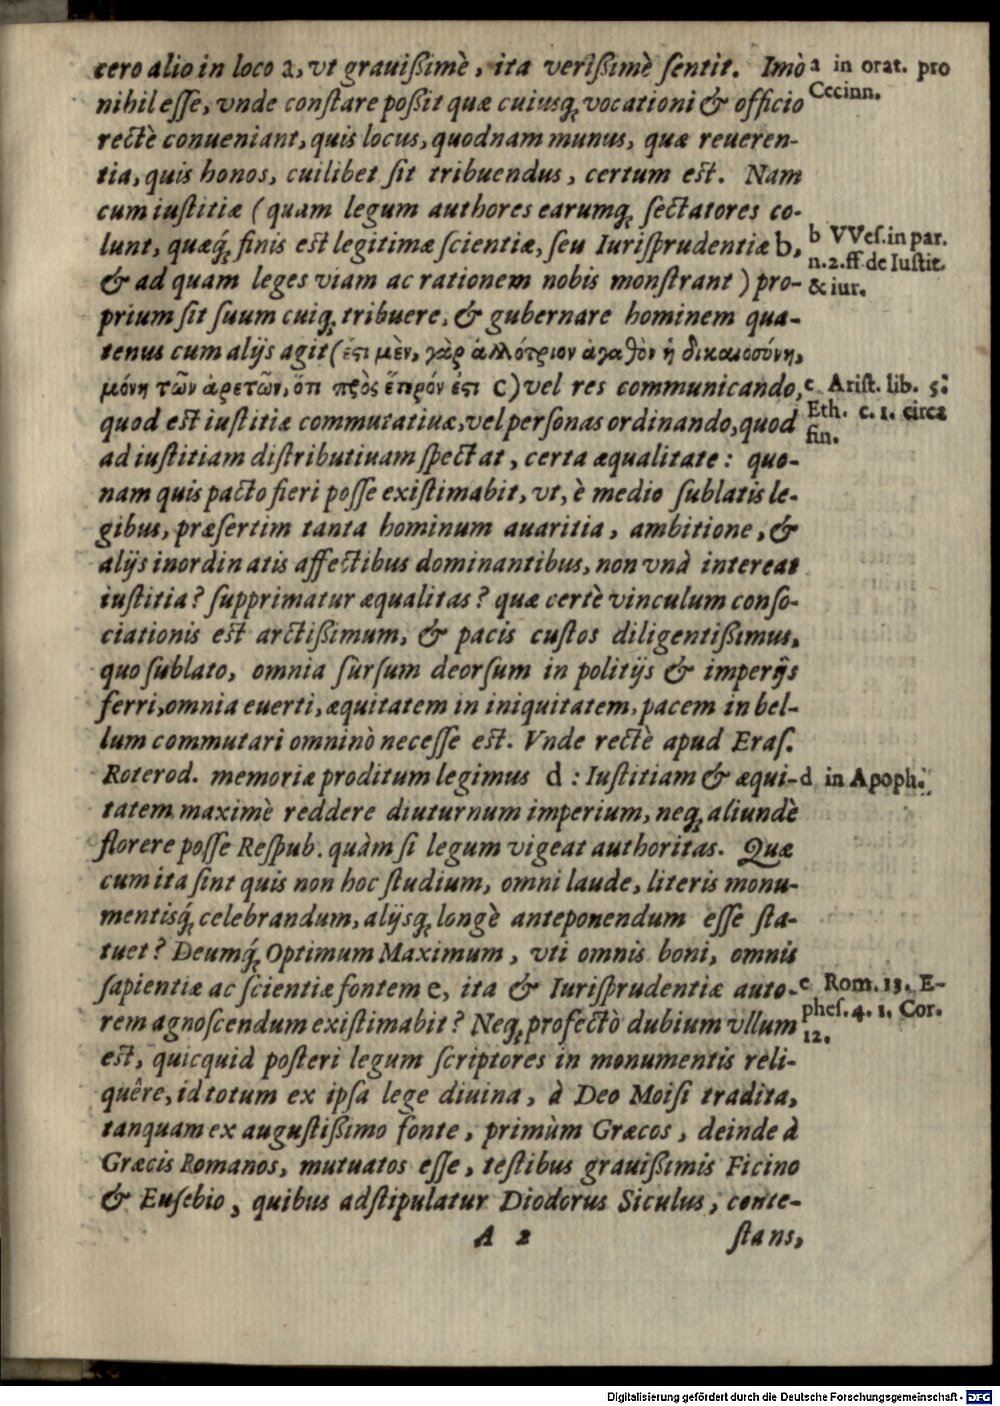 cero alio in loco a, vt grauißimè, ita verißimè sentit. Imò
nihil esse, vnde constare poßit quæ cuiusq; vocationi & officio
rectè conueniant, quis locus, quodnam munus, quæ reueren-
tia, quis honos, cuilibet sit tribuendus, certum est. Nam
cum iustitiæ (quam legum authores earumq; sectatores co-
lunt, quæq́; finis est legitimæ scientiæ, seu Iurisprudentiæ b,
& ad quam leges viam ac rationem nobis monstrant) pro-
prium sit suum cuiq; tribuere, & gubernare hominem qua-
tenus cum alijs agit (ἐςι μὲν, γὰρ ἀλλότριον ἀγαθὸν ἡ δικαιοσύνη,
μόνη τῶν ἀρετῶν, ὅτι πρὸς ἕτερόν ἐςι c) vel res communicando,
quod est iustitiæ commutatiuæ, vel personas ordinando, quod
ad iustitiam distributiuam spectat, certa æqualitate: quo-
nam quis pacto fieri posse existimabit, vt, è medio sublatis le-
gibus, præsertim tanta hominum auaritia, ambitione, &
alijs inordinatis affectibus dominantibus, non vnà intereat
iustitia? supprimatur æqualitas? quæ certè vinculum conso-
ciationis est arctißimum, & pacis custos diligentißimus,
quo sublato, omnia sursum deorsum in politijs & imperijs
ferri, omnia euerti, æquitatem in iniquitatem, pacem in bel-
lum commutari omninò necesse est. Vnde rectè apud Eras.
Roterod. memoriæ proditum legimus d : Iustitiam & æqui-
tatem maximè reddere diuturnum imperium, neq; aliundè
florere posse Respub. quàm si legum vigeat authoritas. Quæ
cum ita sint quis non hoc studium, omni laude, literis monu-
mentisq́; celebrandum, alijsq; longè anteponendum esse sta-
tuet? Deumq́; Optimum Maximum, vti omnis boni, omnis
sapientiæ ac scientiæ fontem e, ita & Iurisprudentiæ auto-
rem agnoscendum existimabit? Neq; profectò dubium vllum
est, quicquid posteri legum scriptores in monumentis reli-
quêre, id totum ex ipsa lege diuina, à Deo Moisi tradita,
tanquam ex augustißimo fonte, primùm Græcos, deinde à
Græcis Romanos, mutuatos esse, testibus grauißimis Ficino
& Eusebio, quibus adstipulatur Diodorus Siculus, conte-
A 2 stans,
a in orat. pro
Cecinn.
b VVes. in par.
n. 2. ff. de Iustit.
& iur.
c Arist. lib. 5.
Eth. c. 1. circa
fin.
d in Apoph.
e Rom. 13. E-
phes. 4. 1. Cor.
12.
Digitalisierung gefördert durch die Deutsche Forschungsgemeinschaft - DFG